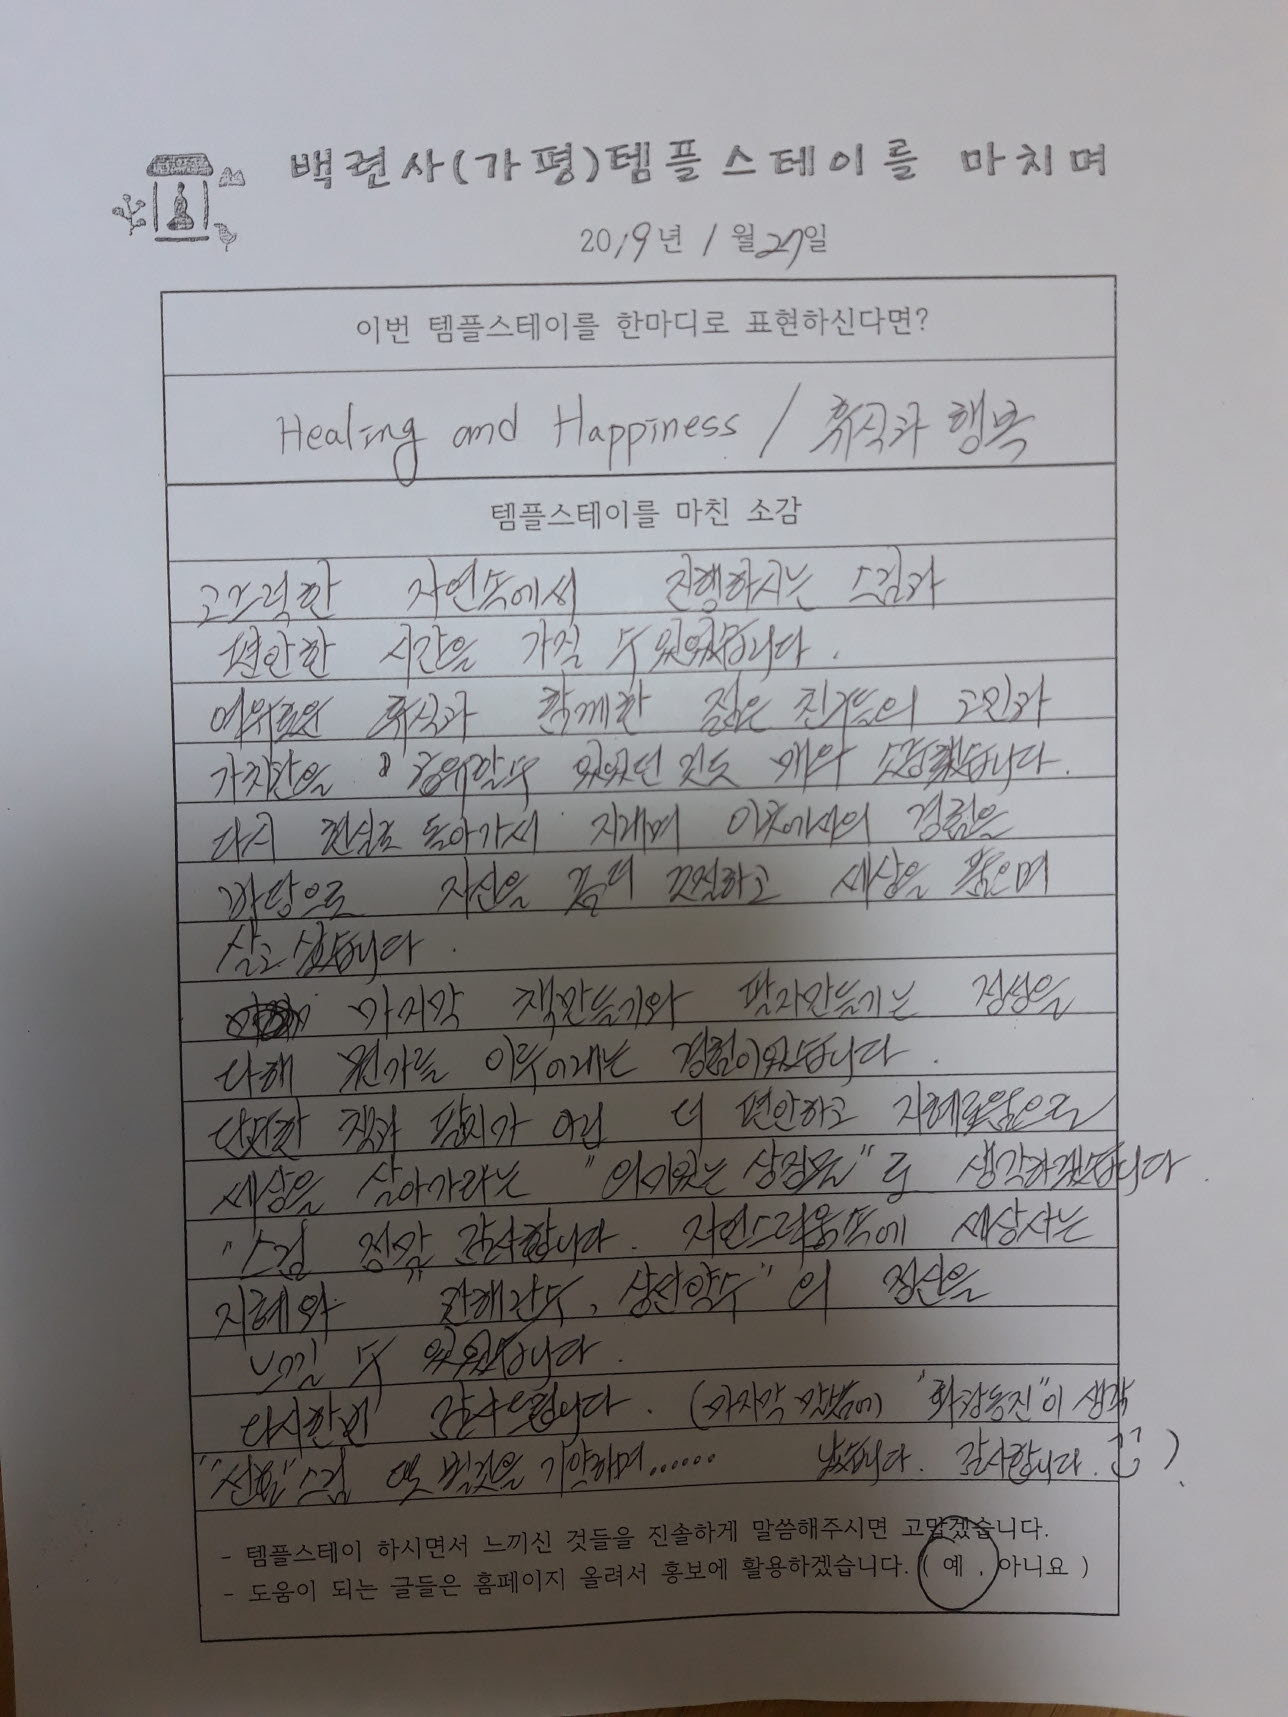 백련사(가평)템플스테이를 마치며
2019년 1월27일
이번 템플스테이를 한마디로 표현하신다면?
Healing and Happiness / 휴식과 행복
템플스테이를 마친 소감
고즈넉한 자연속에서 진행하시는 스님과
편안한 시간을 가질 수 있었습니다.
여유로운 휴식과 함께한 젊은 친구들의 고민과
가치관을 공유할수 있었던 것도 매우 소중했습니다.
다시 현실로 돌아가서 지내며 이곳에서의 경험을
바탕으로 자신을 좀더 고 세상을 품으며
살고 싶습니다.
마지막 책만들기와 팔찌만들기는 정성을
다해 뭔가를 이루어내는 경험이었습니다.
단순한 책과 팔찌가 아닌 더 편안하고 지혜로움으로
세상을 살아가라는 "의미있는 상징물"로 생각하겠습니다.
"스님 정말 감사합니다. 자연스러움속에 세상사는
지혜와 의 정신을
느낄 수 있었습니다.
다시한번 감사드립니다. (마지막 말씀에) "화광동진"이 생각
스님 또 뵐것을 기약하며...... 났습니다. 감사합니다. )
- 템플스테이 하시면서 느끼신 것들을 진솔하게 말씀해주시면 고맙겠습니다.
- 도움이 되는 글들은 홈페이지 올려서 홍보에 활용하겠습니다. ( 예 , 아니요 )